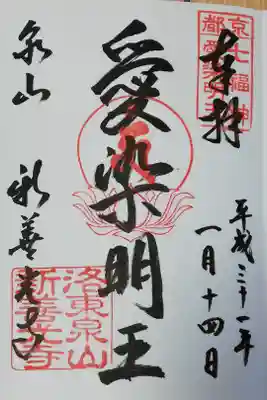 奉拝
平成三十一年
一月十四日
愛染明王
泉山
新善光寺
洛東泉山
新善光寺